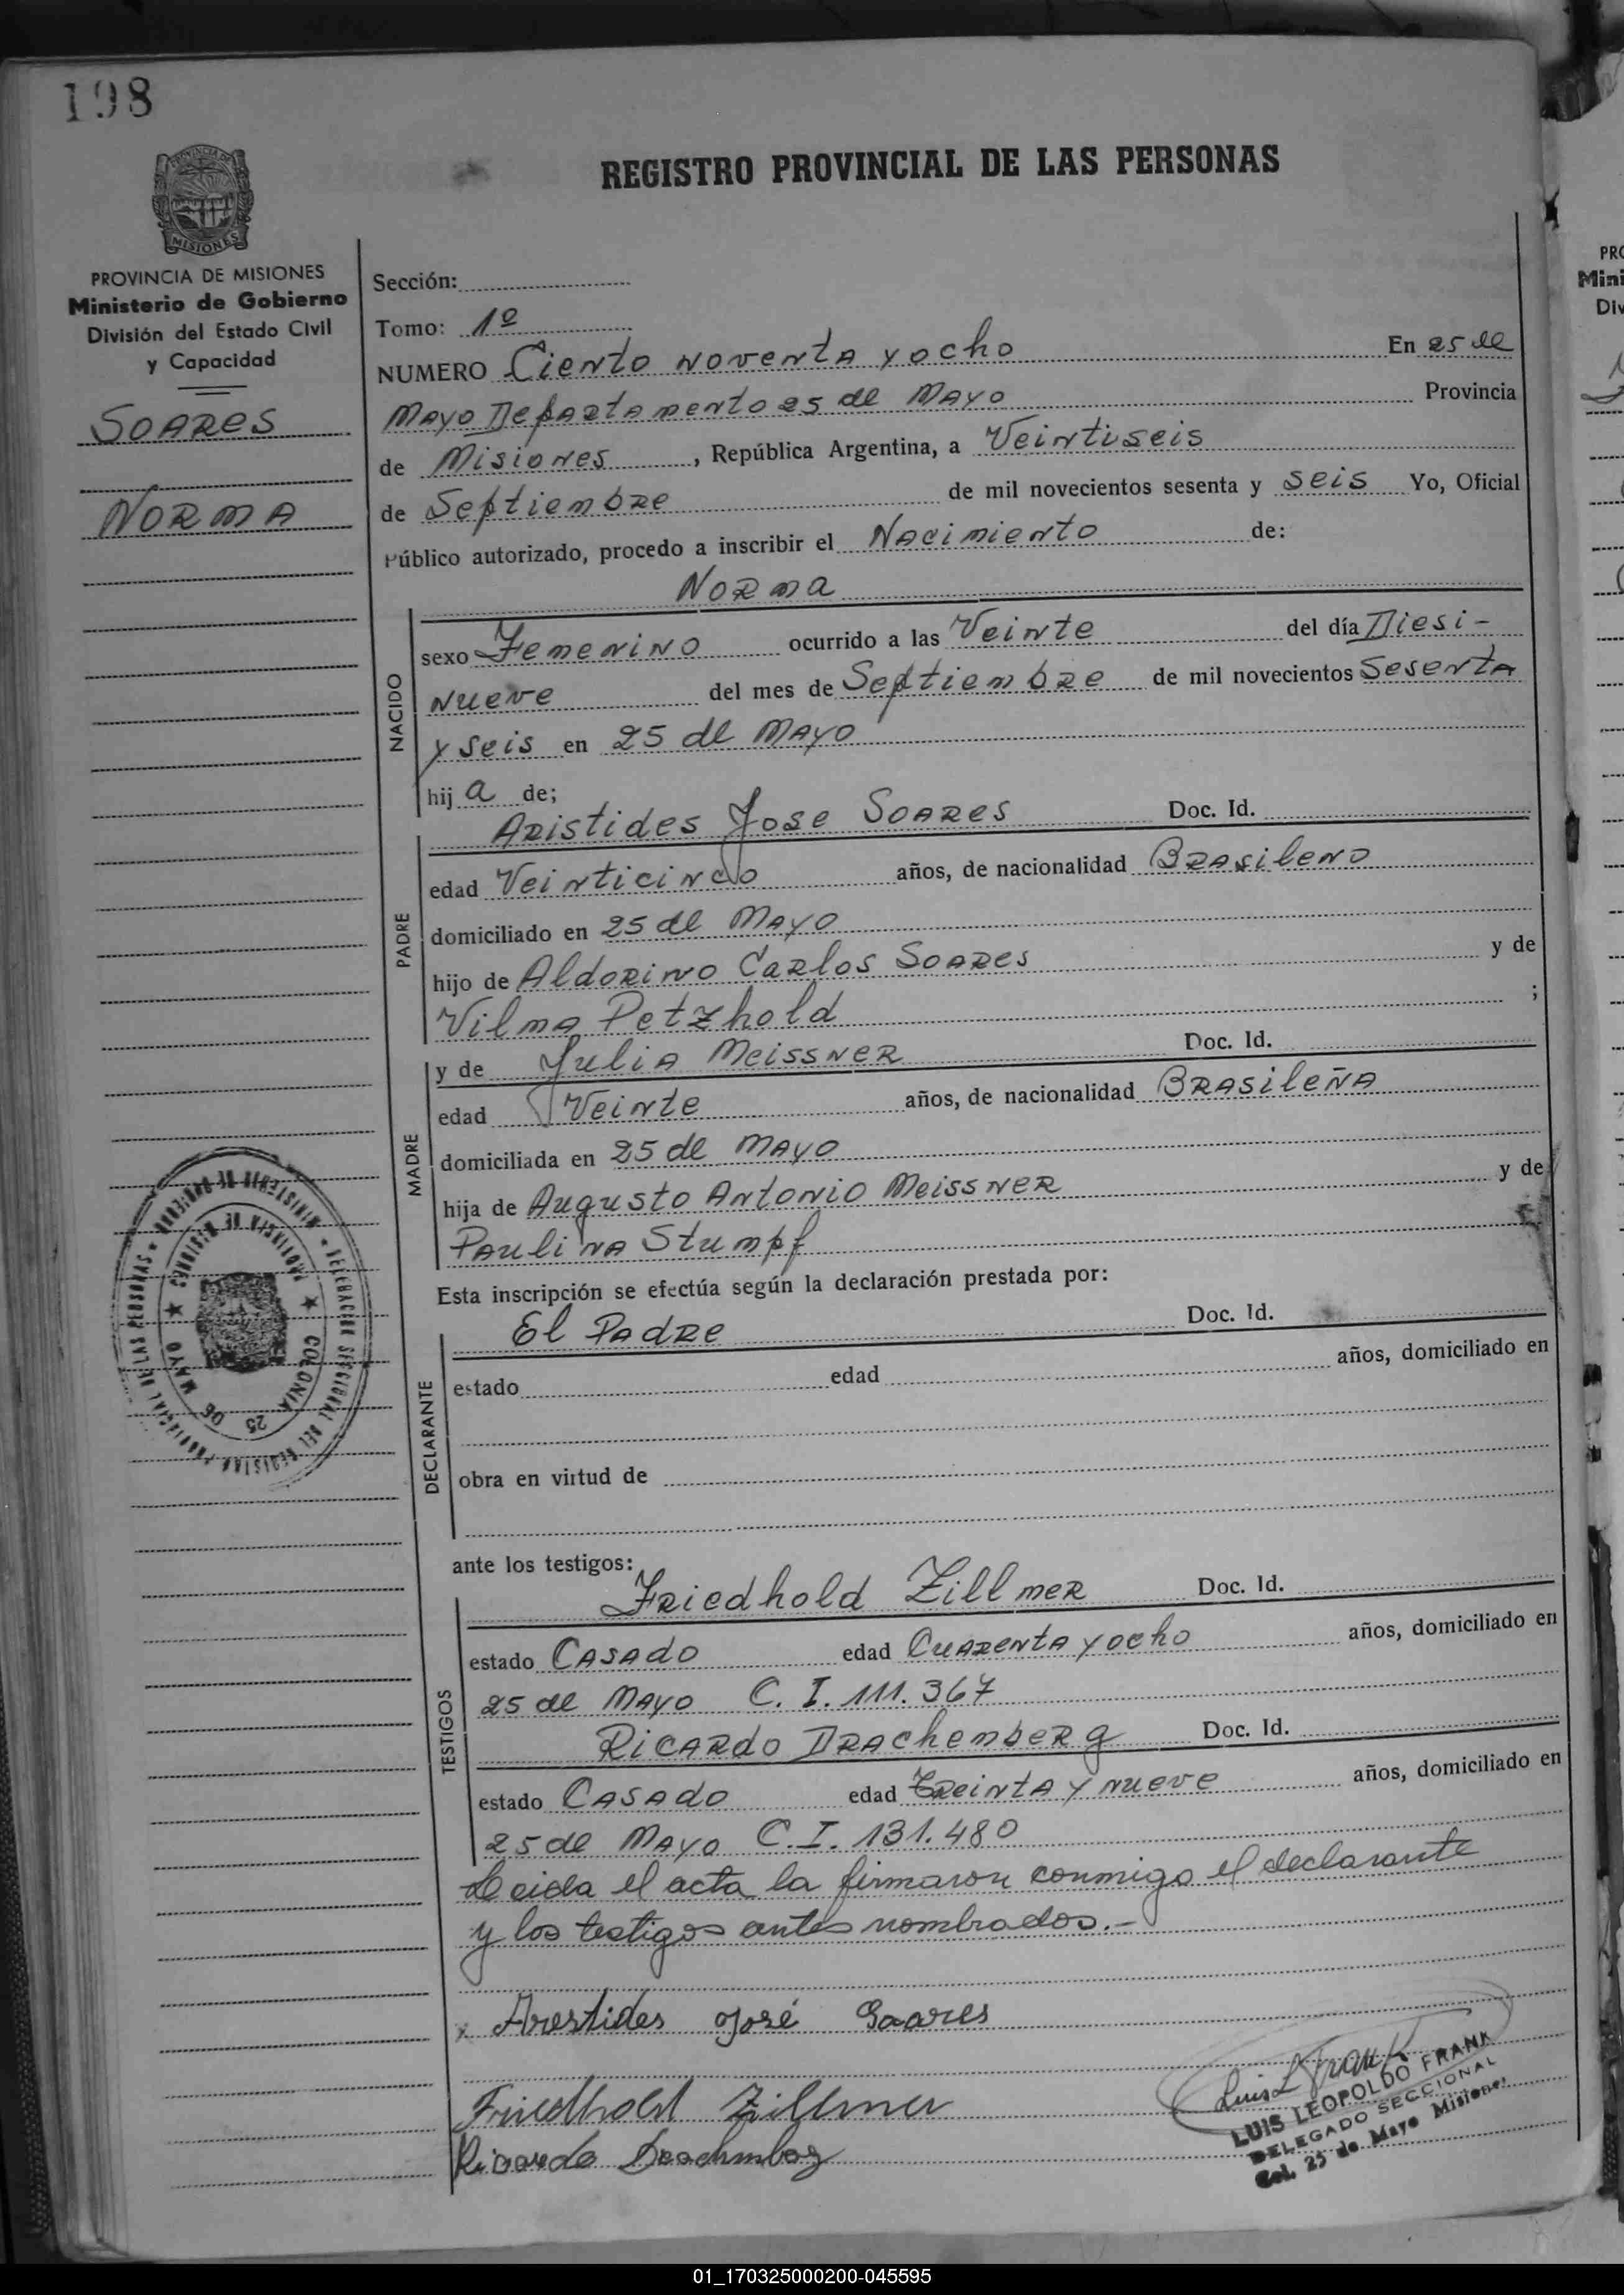 198
REGISTRO PROVINCIAL DE LAS PERSONAS
PROVINCIA DE
MISIONES
PROVINCIA DE MISIONES
Ministerio de Gobierno
División del Estado Civil
y Capacidad
SOARES
NORMA
Sección:
Tomo: 1º
NUMERO Ciento noventa y ocho En 25 de
Mayo Departamento 25 de Mayo Provincia
de Misiones, República Argentina, a Veintiseis
de Septiembre de mil novecientos sesenta y seis Yo, Oficial
Público autorizado, procedo a inscribir el Nacimiento de:
Norma
NACIDO
sexo Femenino ocurrido a las Veinte del día Diesi-
nueve del mes de Septiembre de mil novecientos Sesenta
y seis en 25 de Mayo
hija de;
PADRE
Aristides Jose Soares Doc. Id.
edad Veinticinco años, de nacionalidad Brasileno
domiciliado en 25 de Mayo
hijo de Aldorino Carlos Soares y de
Vilma Petzhold ;
MADRE
y de Julia Meissner Doc. Id.
edad Veinte años, de nacionalidad Brasileña
domiciliada en 25 de Mayo
hija de Augusto Antonio Meissner y de
Paulina Stumpf
Esta inscripción se efectúa según la declaración prestada por:
DECLARANTE
El Padre Doc. Id.
estado edad años, domiciliado en
obra en virtud de
ante los testigos:
TESTIGOS
Friedhold Zillmer Doc. Id.
estado Casado edad Cuarenta y ocho años, domiciliado en
25 de Mayo C. I. 111.367
Ricardo Drachemberg Doc. Id.
estado Casado edad Treinta y nueve años, domiciliado en
25 de Mayo C. I. 131.480
Leida el acta la firmaron conmigo el declarante
y los testigos antes nombrados.-
x Arestides José Soares
Friedhold Zillmer
Ricardo Drachmberg
Luis L Frank
LUIS LEOPOLDO FRANK
DELEGADO SECCIONAL
Col. 25 de Mayo Misiones
MINISTERIO DE GOBIERNO ★ DELEGACION SECCIONAL DEL REGISTRO PROVINCIAL DE LAS PERSONAS
PROVINCIA DE MISIONES ★ COLONIA 25 DE MAYO ★
PRO
Mini
Div
01_170325000200-045595